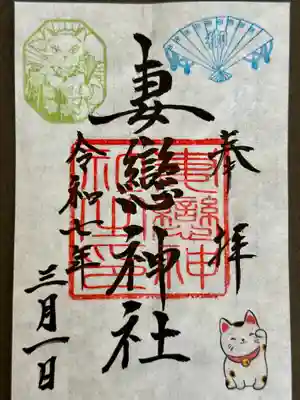 奉拝
妻戀神社
令和七年
三月一日
妻戀神社印